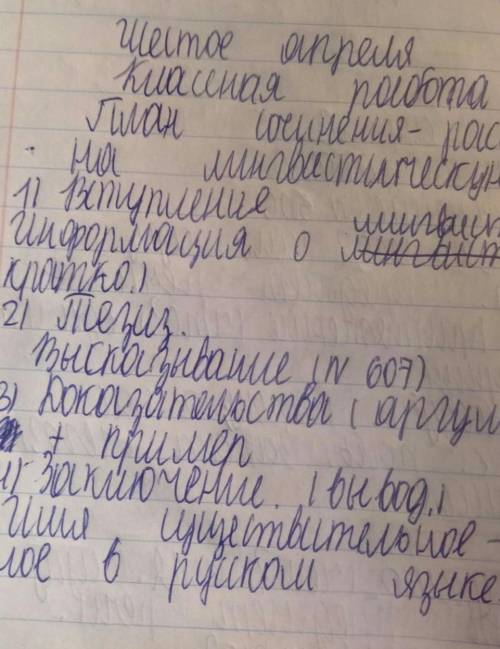 Шестое апреля
Классная работа
План сочинения-рас
на лингвистическую
1) Вступление лингвист
Информация о лингвист
кратко.)
2) Тезиз.
Высказывание (N 607)
3) Доказательства (аргум
+ пример
4) Заключение. (вывод.)
Имя существительное -
мое в руском языке.